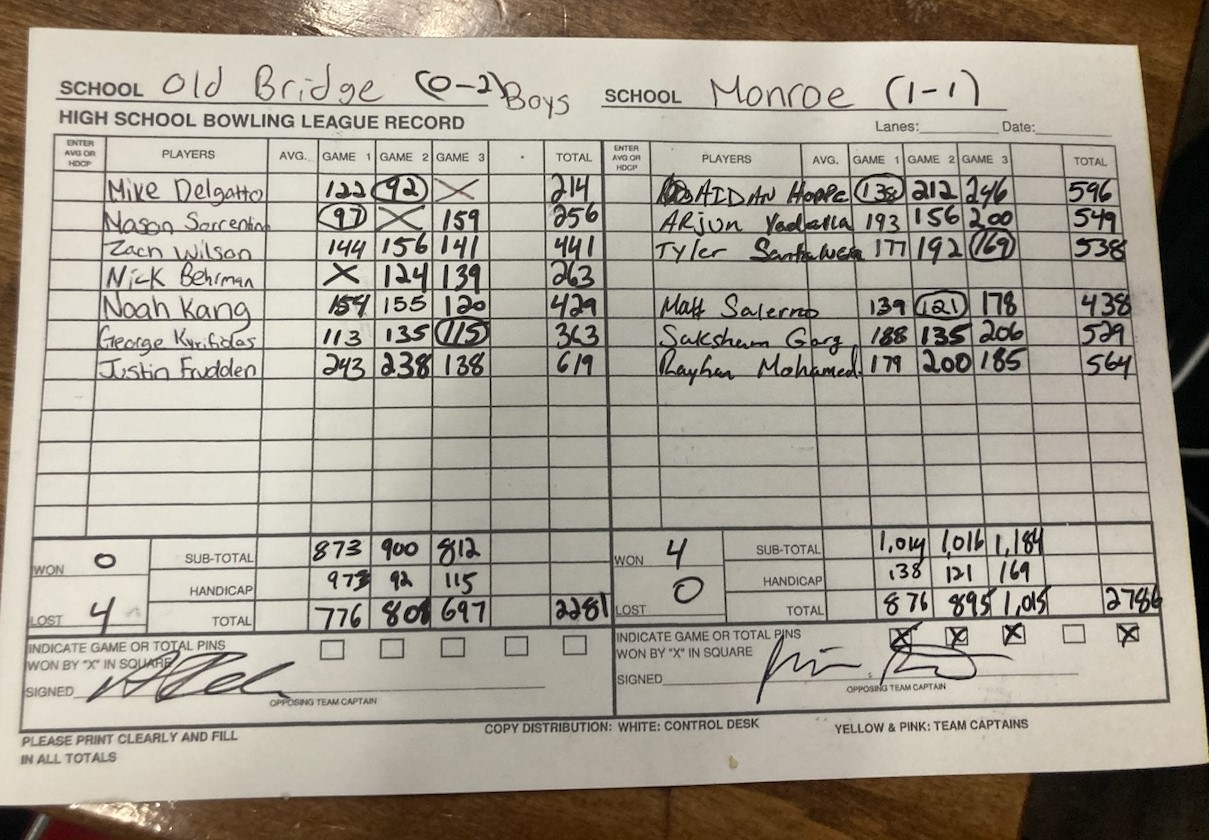 SCHOOL Old Bridge (0-2) Boys SCHOOL Monroe (1-1)
HIGH SCHOOL BOWLING LEAGUE RECORD Lanes: Date:
ENTER AVG OR HDCP PLAYERS AVG. GAME 1 GAME 2 GAME 3 TOTAL ENTER AVG OR HDCP PLAYERS AVG. GAME 1 GAME 2 GAME 3 TOTAL
Mike Delgatto 122 92 X 214 AIDAN Hoppe 138 212 246 596
Mason Sorrentino 97 X 159 256 Arjun Yadalla 193 156 200 549
Zach Wilson 144 156 141 441 Tyler 177 192 169 538
Nick Behrman X 124 139 263
Noah Kang 154 155 120 429 Matt Salerno 139 121 178 438
George 113 135 115 363 Saksham Garg 188 135 206 529
Justin Frudden 243 238 138 619 Rayhan Mohamed 179 200 185 564
WON 0 SUB-TOTAL 873 900 812 WON 4 SUB-TOTAL 1,014 1,016 1,184
HANDICAP 97 92 115 HANDICAP 138 121 169
LOST 4 TOTAL 776 808 697 2281 LOST 0 TOTAL 876 895 1,015 2786
INDICATE GAME OR TOTAL PINS INDICATE GAME OR TOTAL PINS X X X X
WON BY "X" IN SQUARE WON BY "X" IN SQUARE
SIGNED SIGNED
OPPOSING TEAM CAPTAIN OPPOSING TEAM CAPTAIN
PLEASE PRINT CLEARLY AND FILL COPY DISTRIBUTION: WHITE: CONTROL DESK YELLOW & PINK: TEAM CAPTAINS
IN ALL TOTALS